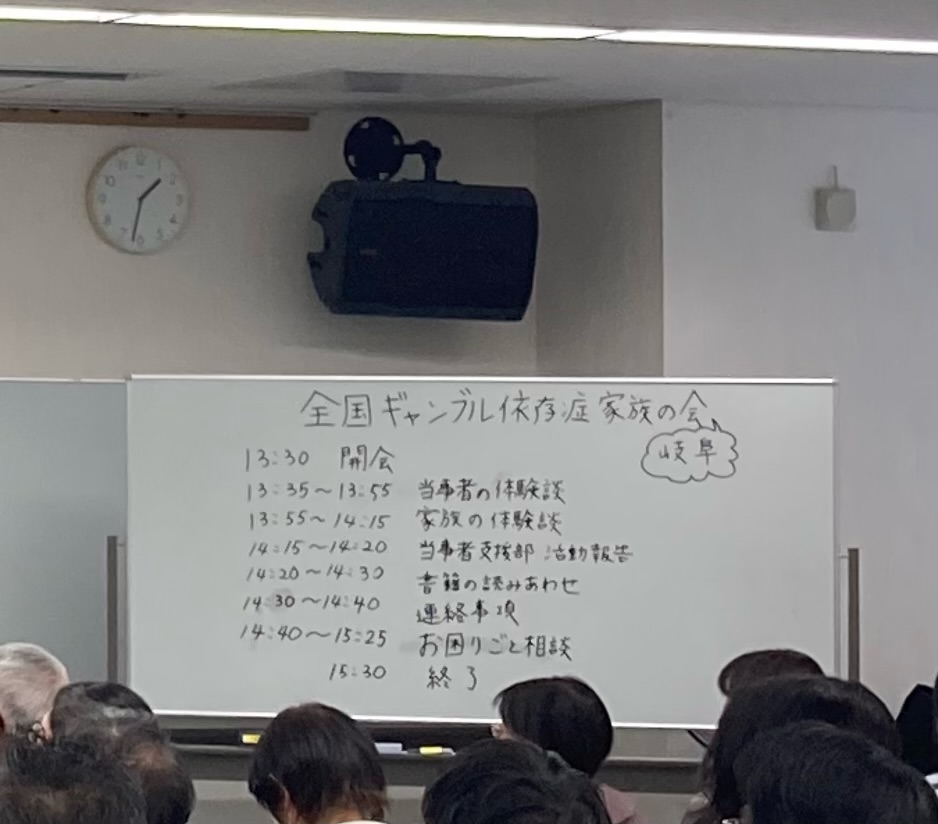 全国ギャンブル依存症家族の会
岐阜
13:30 開会
13:35～13:55 当事者の体験談
13:55～14:15 家族の体験談
14:15～14:20 当事者支援部 活動報告
14:20～14:30 書籍の読みあわせ
14:30～14:40 連絡事項
14:40～15:25 お困りごと相談
15:30 終了